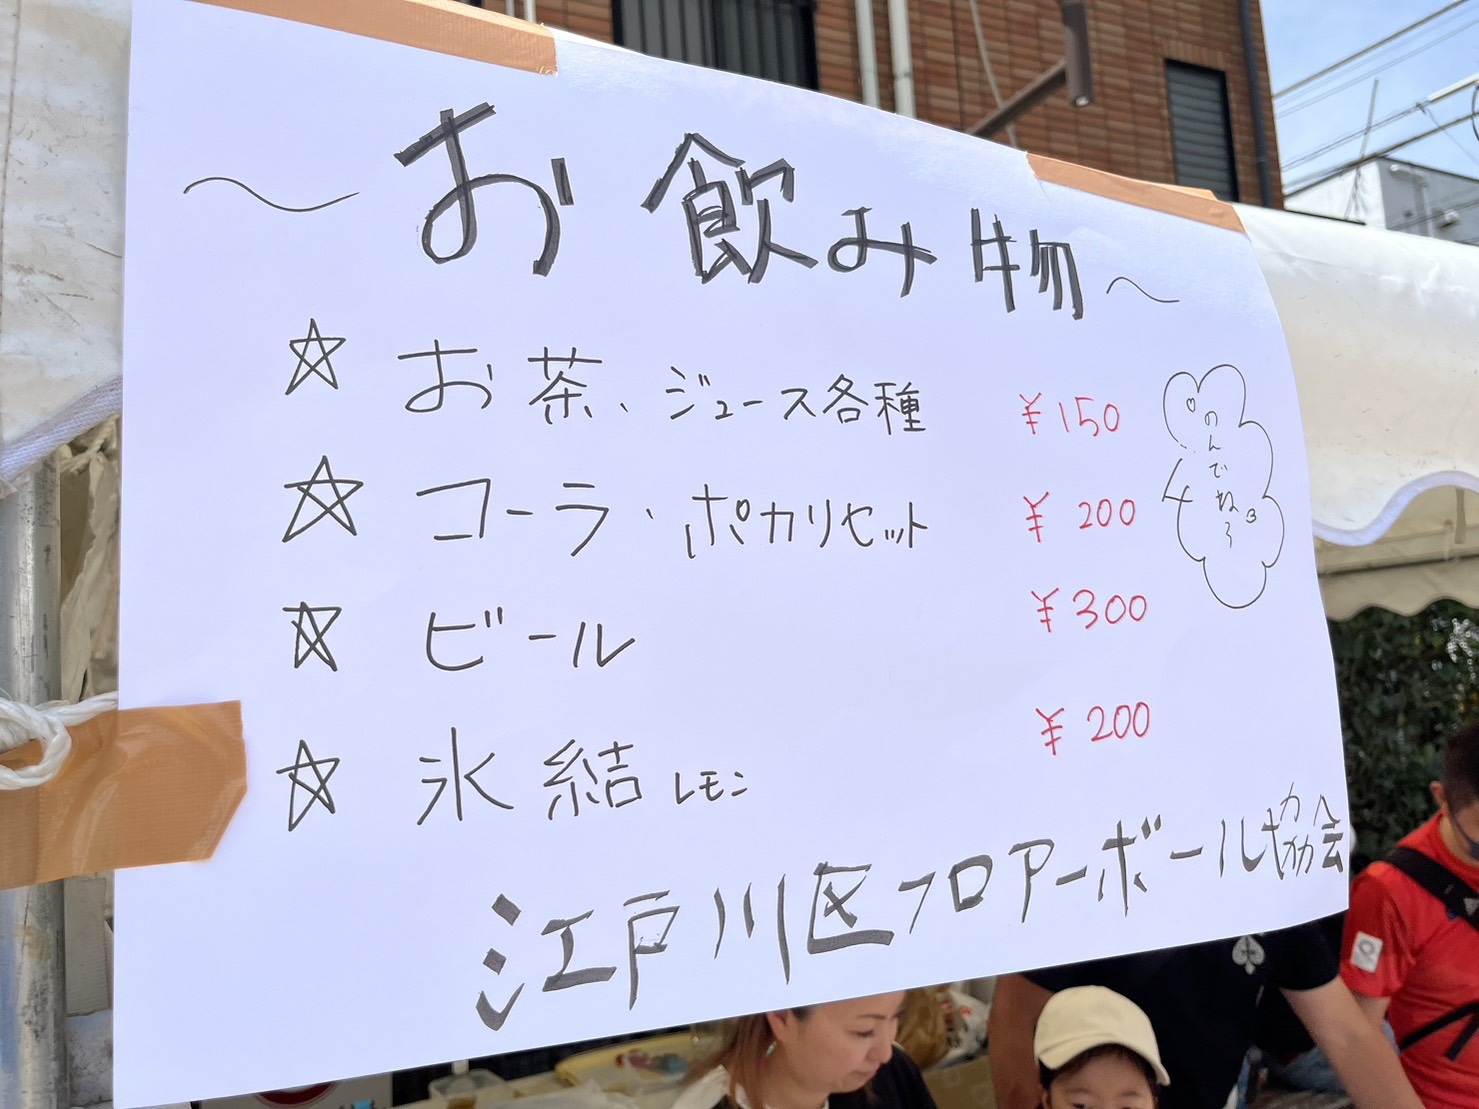 ～お飲み物～
☆ お茶、ジュース各種 ¥150
☆ コーラ、ポカリセット ¥200
☆ ビール ¥300
☆ 氷結レモン ¥200
のんでねう
江戸川区フロアーボール協会